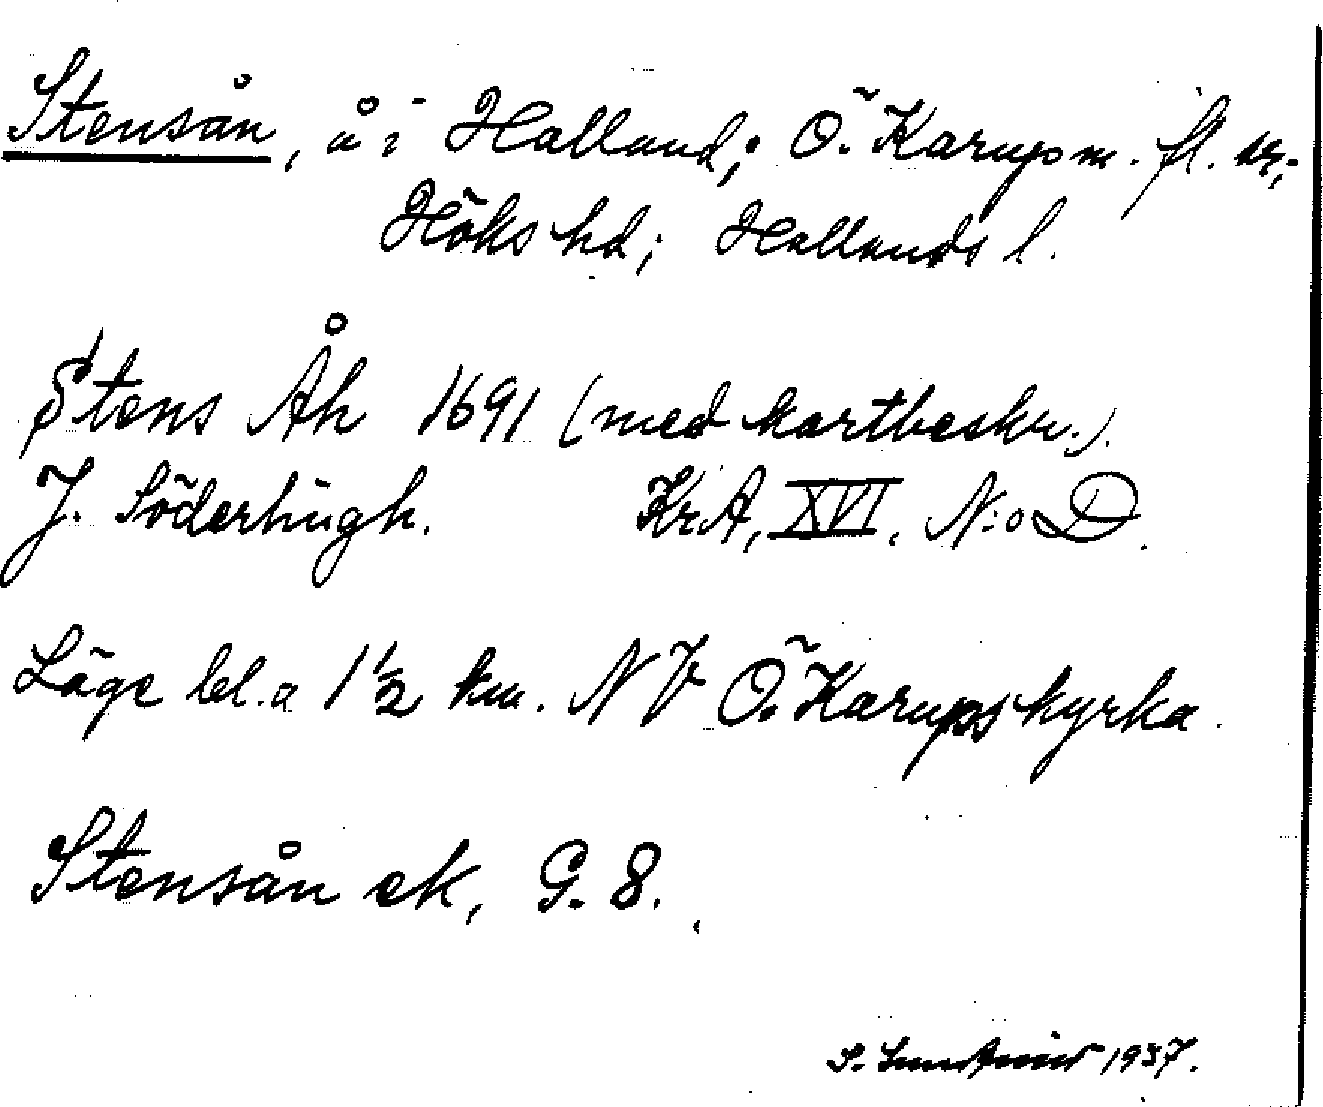 Stensån, å i Halland; Ö. Karups m. fl. sn;
Höks hd; Hallands l.
Stens Åh 1691 (med kartbeskr.).
J. Söderhiugh. KrA, XVI, N:o D.
Läge bl.a 1½ km. NV Ö. Karups kyrka.
Stensån ek, G. 8.
S. 1937.